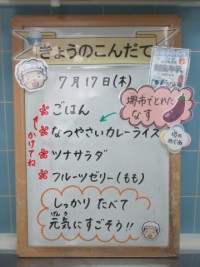 きょうのこんだて
7月17日(木)
ごはん
なつやさいカレーライス
かけてね
ツナサラダ
フルーツゼリー(もも)
堺市でとれた
なす
しっかり たべて
げんき
元気にすごそう!!